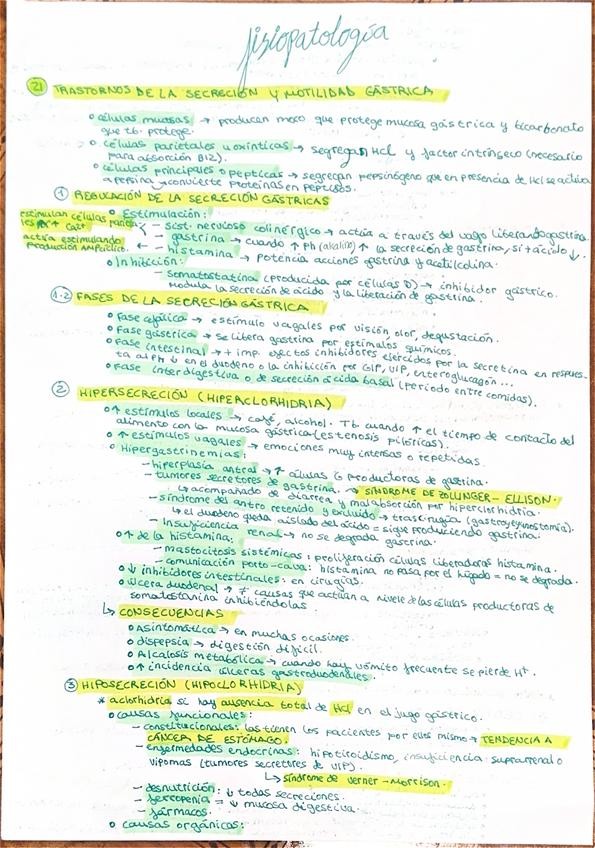 fisiopatología
21 TRASTORNOS DE LA SECRECIÓN Y MOTILIDAD GÁSTRICA
• células mucosas → producen moco que protege mucosa gástrica y bicarbonato
que tb. protege.
• células parietales u oxínticas → segregan HCl y factor intrínseco (necesario
para absorción B12).
• células principales o pépticas → segregan pepsinógeno que en presencia de HCl se activa
a pepsina y convierte proteínas en péptidos.
1 REGULACIÓN DE LA SECRECIÓN GÁSTRICAS
• Estimulación:
estimulan células parieta-
les ↑ Ca2+
actúa estimulando
producción AMPcíclico.
- sist. nervioso colinérgico → actúa a través del vago liberando gastrina.
- gastrina → cuando ↑ Ph (alkalino) ↑ la secreción de gastrina, si + ácido ↓.
- histamina → potencia acciones gastrina y acetilcolina.
• Inhibición:
- somatostatina (producida por células D) → inhibidor gástrico.
modula la secreción de ácido y la liberación de gastrina.
1.2 FASES DE LA SECRECIÓN GÁSTRICA
• Fase cefálica → estímulo vagales por visión, olor, degustación.
• Fase gástrica → se libera gastrina por estímulos químicos.
• Fase intestinal → + imp. efectos inhibidores ejercidos por la secretina en respues-
ta al pH ↓ en el duodeno o la inhibición por GIP, VIP, enteroglucagón...
• Fase interdigestiva o de secreción ácida basal (período entre comidas).
2 HIPERSECRECIÓN (HIPERCLORHIDRIA)
• ↑ estímulos locales → café, alcohol. Tb cuando ↑ el tiempo de contacto del
alimento con la mucosa gástrica (estenosis pilóricas).
• ↑ estímulos vagales → emociones muy intensas o repetidas.
• Hipergastrinemias:
- hiperplasia antral → ↑ células G productoras de gastrina.
- tumores secretores de gastrina. → SÍNDROME DE ZOLLINGER-ELLISON.
↳ acompañado de diarrea y malabsorción por hiperclorhidria.
- síndrome del antro retenido y excluido → tras cirugía (gastroyeyunostomía).
↳ el duodeno queda aislado del ácido = sigue produciendo gastrina.
- Insuficiencia renal → no se degrada gastrina.
• ↑ de la histamina:
- mastocitosis sistémicas: proliferación células liberadoras histamina.
- comunicación porto-cava: histamina no pasa por el hígado = no se degrada.
• ↓ inhibidores intestinales: en cirugías.
• úlcera duodenal → ≠ causas que actúan a nivel de las células productoras de
somatostanina inhibiéndolas.
↳ CONSECUENCIAS
• Asintomática → en muchas ocasiones.
• dispepsia → digestión difícil.
• Alcalosis metabólica → cuando hay vómito frecuente se pierde H+.
• ↑ incidencia úlceras gastroduodenales.
3 HIPOSECRECIÓN (HIPOCLORHIDRIA)
* aclorhidria si hay ausencia total de HCl en el jugo gástrico.
• causas funcionales:
- constitucionales: las tienen los pacientes por ellos mismo → TENDENCIA A
CÁNCER DE ESTÓMAGO.
- enfermedades endocrinas: hipotiroidismo, insuficiencia suprarrenal o
vipomas (tumores secretores de VIP).
↳ síndrome de Verner-Morrison.
- desnutrición: ↓ todas secreciones.
- ferropenia = ↓ mucosa digestiva.
- fármacos.
• causas orgánicas: